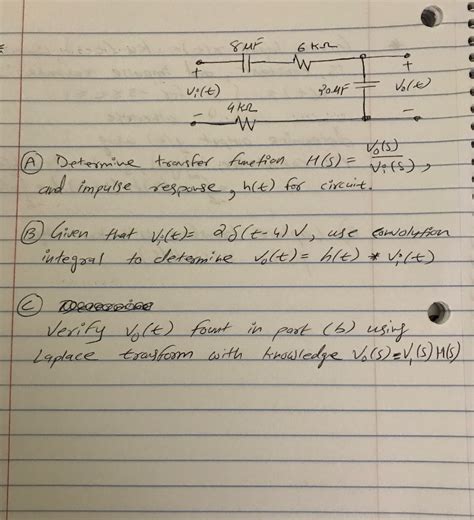 8μF 6KΩ
+ +
Vi(t) 20μF Vo(t)
4KΩ
- -
(A) Determine transfer function H(s) = Vo(s)/Vi(s),
and impulse response, h(t) for circuit.
(B) Given that Vi(t)= 2δ(t-4)V, use convolution
integral to determine Vo(t)= h(t) * Vi(t)
(C)
Verify Vo(t) fount in part (b) using
Laplace transform with knowledge Vo(s)=Vi(s)H(s)